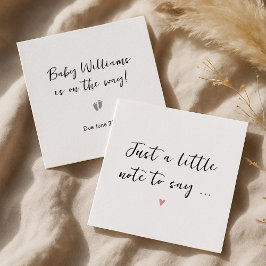 Baby Williams
is on the way!
Due June
Just a little
note to say ...